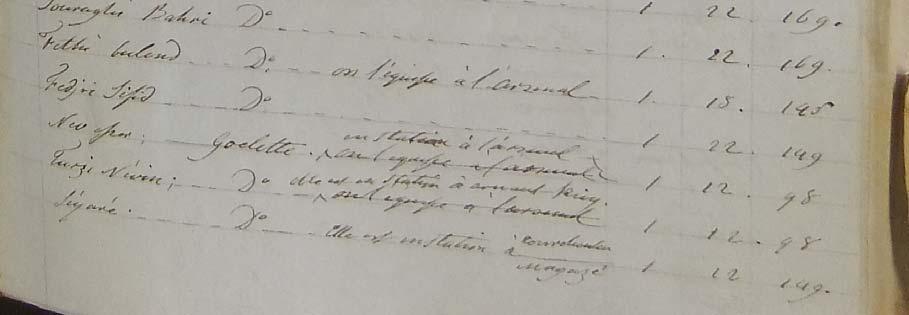 Souraghi Bahri D° 1 22 169.
Fethi bulend D° 1. 22. 169.
Fedjri Sefid D° on l'équipe à l'arsenal 1. 18. 145
New eser; Goelette. en station à l'arsenal 1 22. 149
on l'équipe à l'arsenal
D° elle est en station à 1 12. 98
on l'équipe à l'arsenal
Siyaré. D° elle est en station à 1 12. 98
1 12 149.